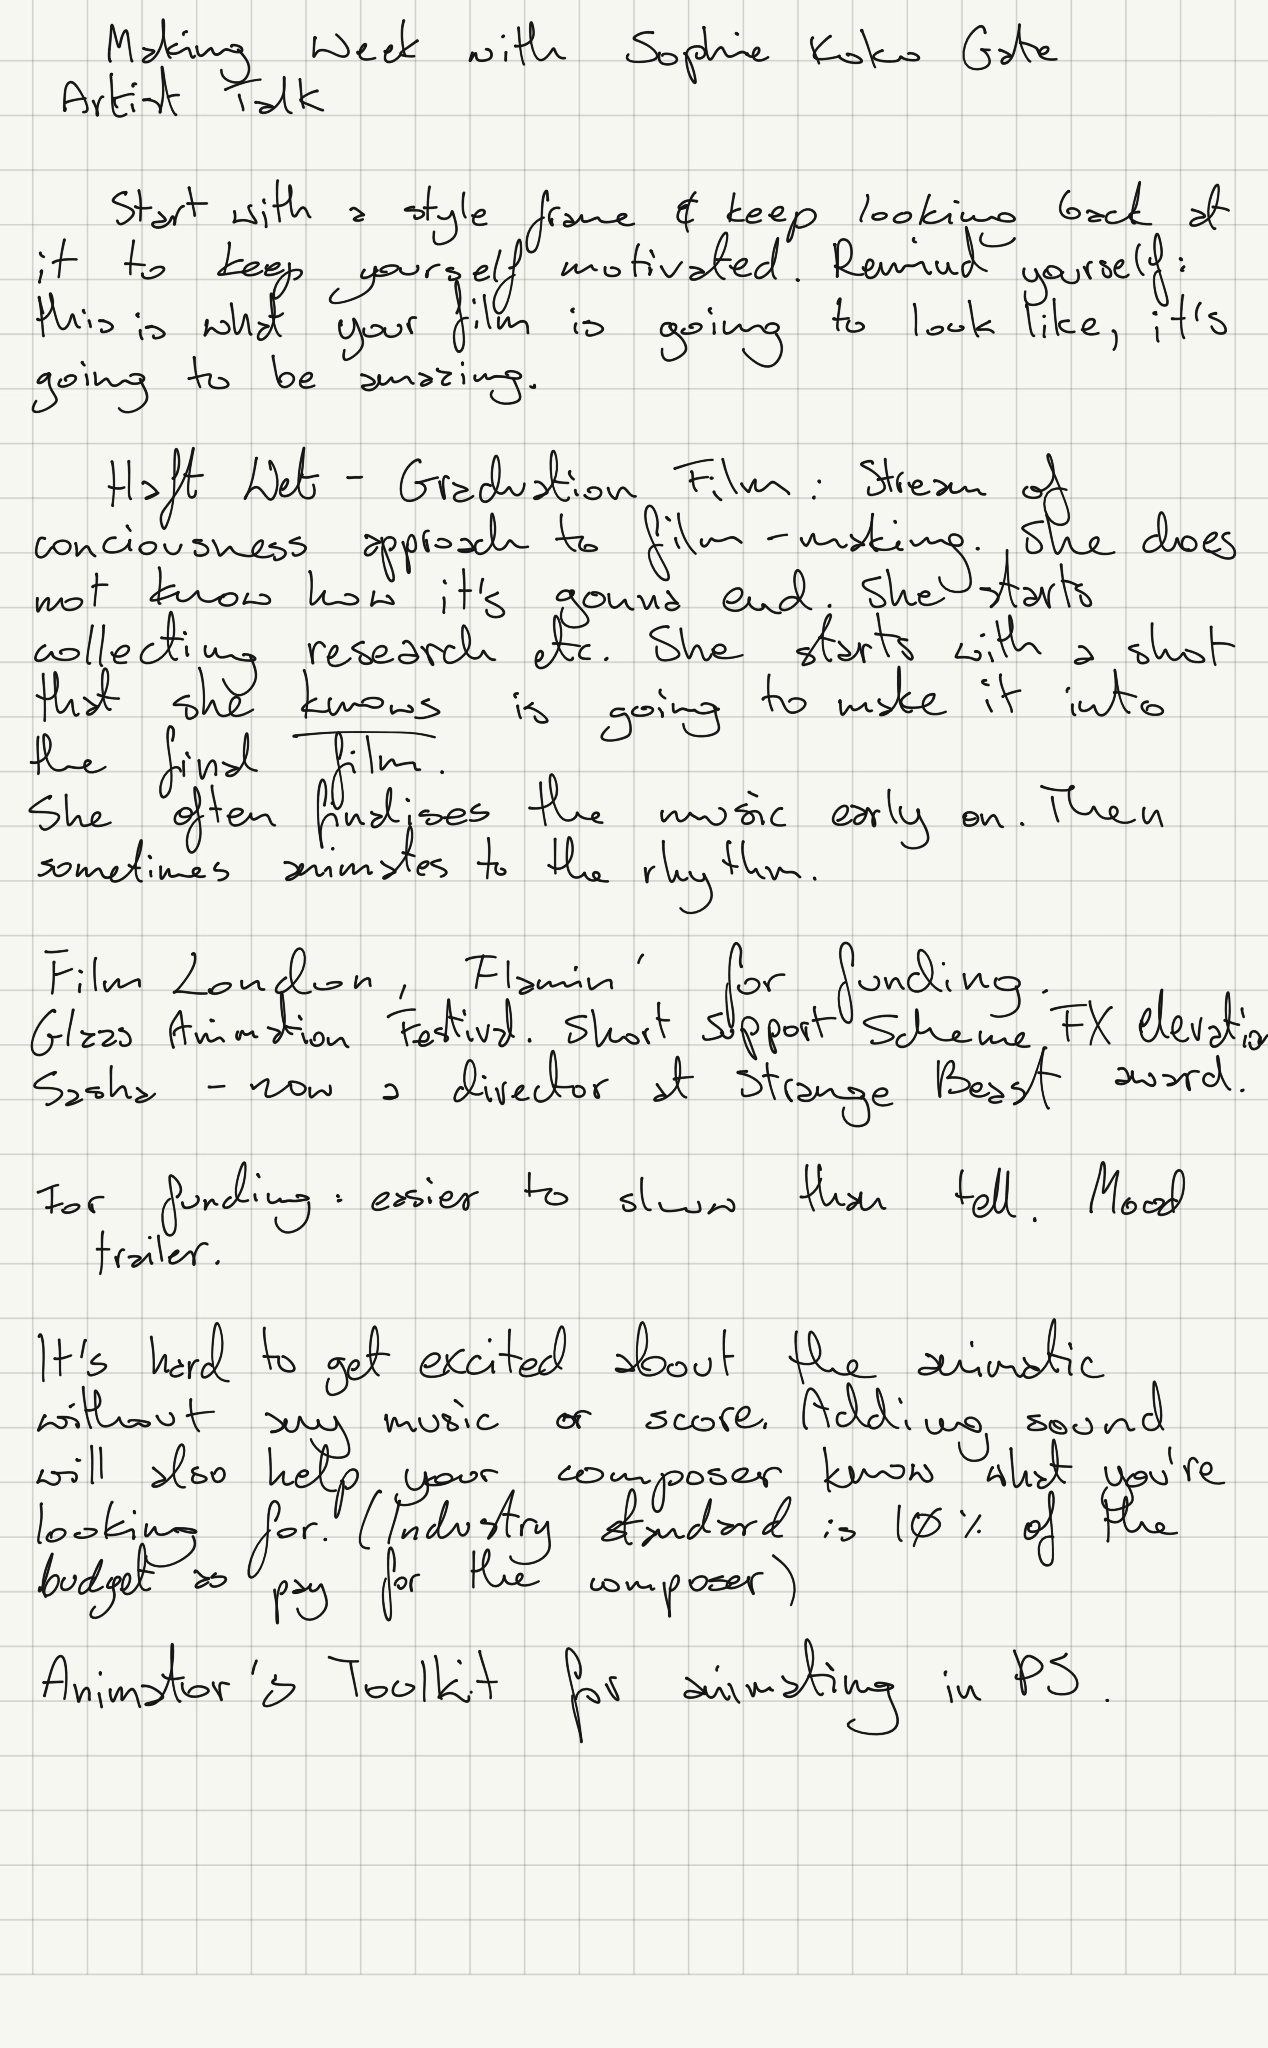 Making Week with Sophie Koko Gate
Artist Talk
Start with a style frame & keep looking back at
it to keep yourself motivated. Remind yourself:
this is what your film is going to look like, it's
going to be amazing.
Haft Wet - Graduation Film: Stream of
conciousness approach to film-making. She does
not know how it's gonna end. She starts
collecting research etc. She starts with a shot
that she knows is going to make it into
the final film.
She often finalises the music early on. Then
sometimes animates to the rhythm.
Film London, Flamin' for funding.
Glaas Animation Festival. Short Support Scheme. FX elevation
Sasha - now a director at Strange Beast award.
For funding: easier to show than tell. Mood
trailer.
It's hard to get excited about the animatic
without any music or score. Adding sound
will also help your composer know what you're
looking for. (Industry standard is 10% of the
budget as pay for the composer)
Animator's Toolkit for animating in PS.